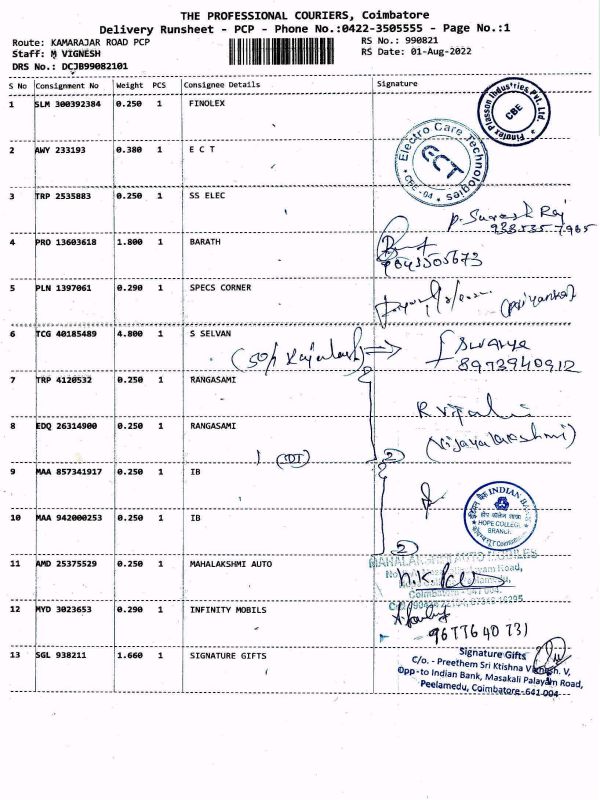 THE PROFESSIONAL COURIERS, Coimbatore
Delivery Runsheet - PCP - Phone No.:0422-3505555 - Page No.:1
Route: KAMARAJAR ROAD PCP
RS No.: 990821
Staff: M VIGNESH
RS Date: 01-Aug-2022
DRS No.: DCJB99082101
S No Consignment No Weight PCS Consignee Details Signature
1 SLM 300392384 0.250 1 FINOLEX
Finolex Plasson Industries Pvt. Ltd.
CBE
2 AWY 233193 0.380 1 E C T
Electro Care Technologies
ECT
CBE-04
3 TRP 2535883 0.250 1 SS ELEC
P. Suresh Raj
4 PRO 13603618 1.800 1 BARATH
9843505673
5 PLN 1397061 0.290 1 SPECS CORNER
(Priyanka)
6 TCG 40185489 4.800 1 S SELVAN
8973940912
7 TRP 4120532 0.250 1 RANGASAMI
8 EDQ 26314900 0.250 1 RANGASAMI
(Vijayalakshmi)
2
9 MAA 857341917 0.250 1 IB
INDIAN BANK
HOPE COLLEGE
BRANCH
10 MAA 942000253 0.250 1 IB
2
11 AMD 25375529 0.250 1 MAHALAKSHMI AUTO
Coimbatore - 641 004.
12 MYD 3023653 0.290 1 INFINITY MOBILS
9677640731
13 SGL 938211 1.660 1 SIGNATURE GIFTS
Signature Gifts
C/o. - Preethem Sri Ktishna V
Opp-to Indian Bank, Masakali Palayam Road,
Peelamedu, Coimbatore-641 004